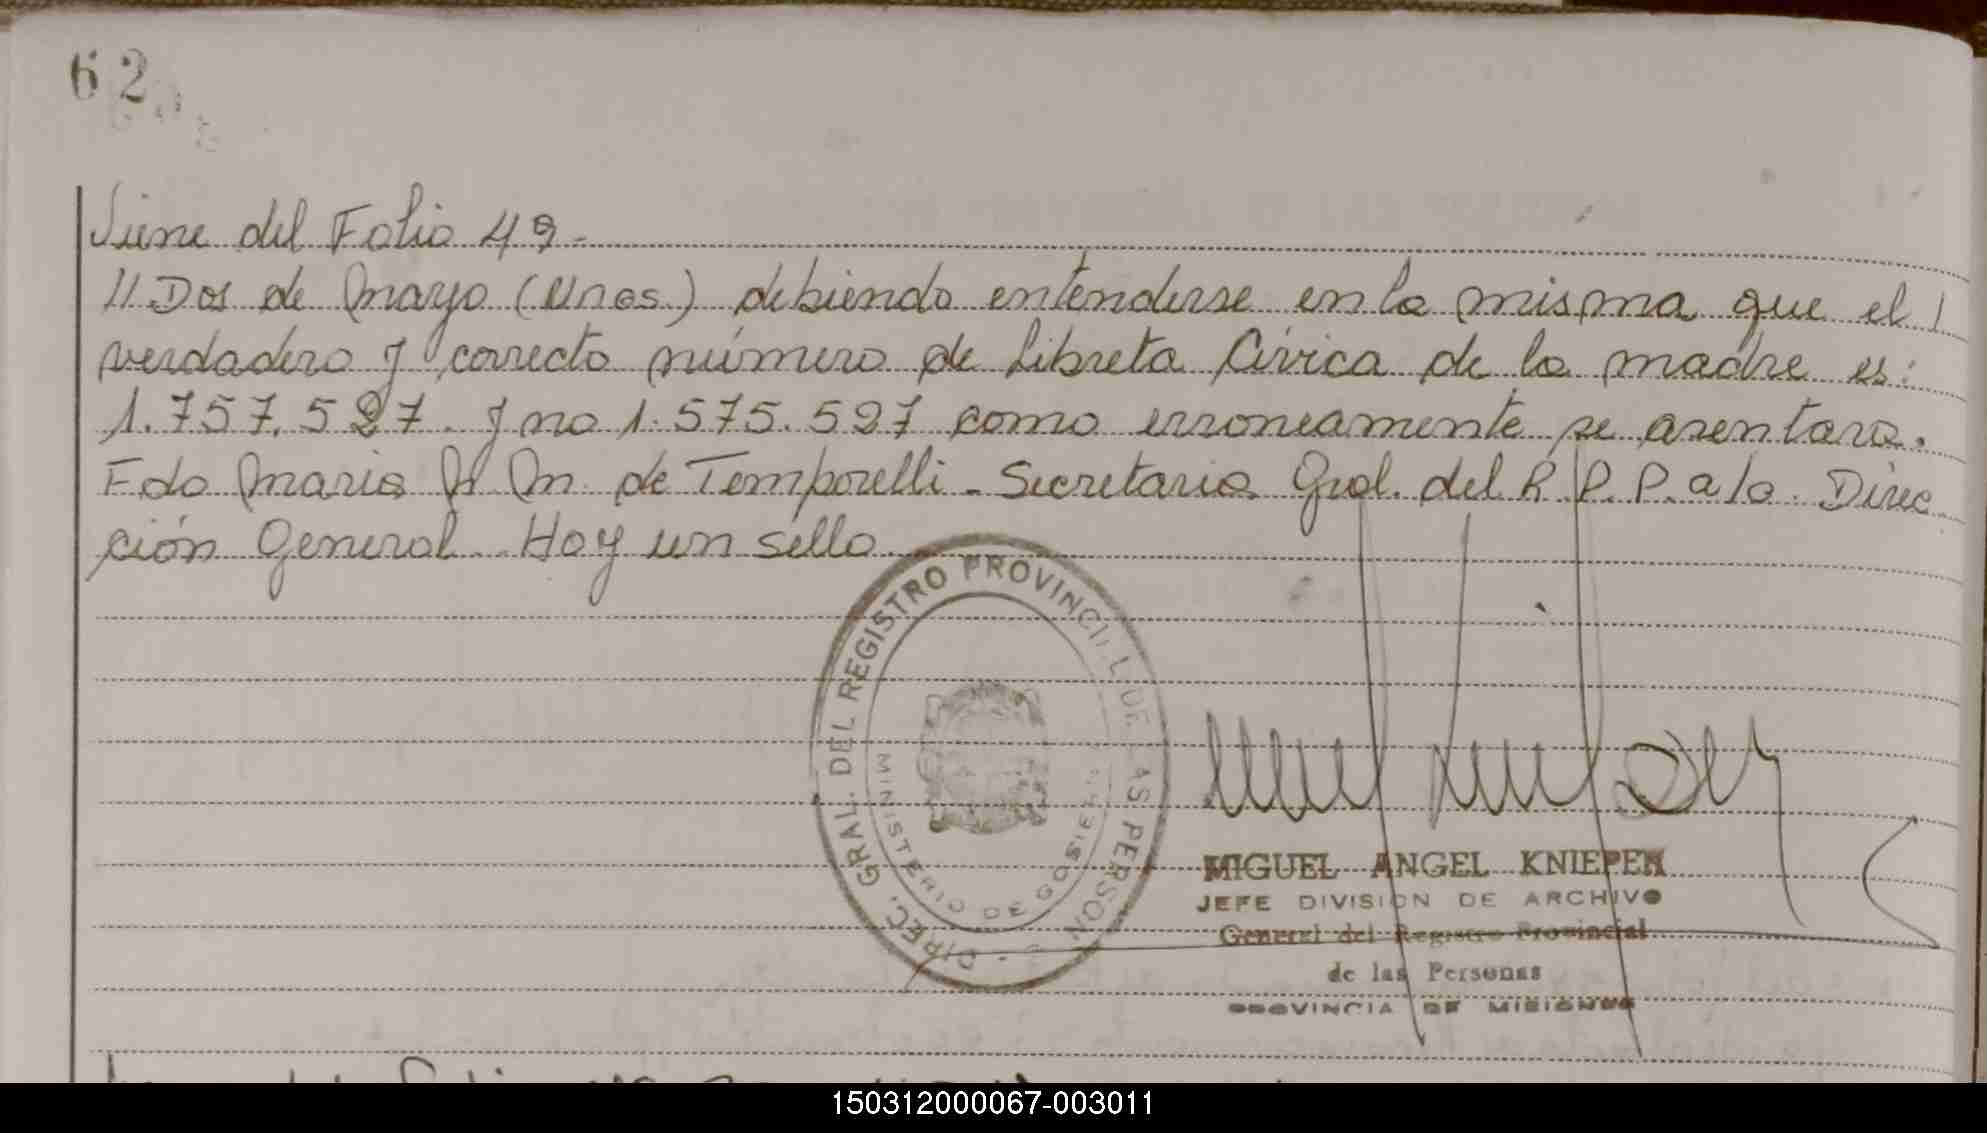 62
Viene del Folio 49-
// Dos de Mayo (Mnes.) debiendo entenderse en la misma que el
verdadero y correcto número de Libreta Cívica de la madre es:
1.757.527. y no 1.575.527 como erroneamente se asentara.
Fdo Maria M. de Temporelli - Secretaria Gral. del R.P.P. a/c. Direc
ción General. Hay un sello
DIREC. GRAL. DEL REGISTRO PROVINCIAL DE LAS PERSONAS
MINISTERIO DE GOBIERNO
MIGUEL ANGEL KNIEPEN
JEFE DIVISION DE ARCHIVO
General del Registro Provincial
de las Personas
PROVINCIA DE MISIONES
150312000067-003011